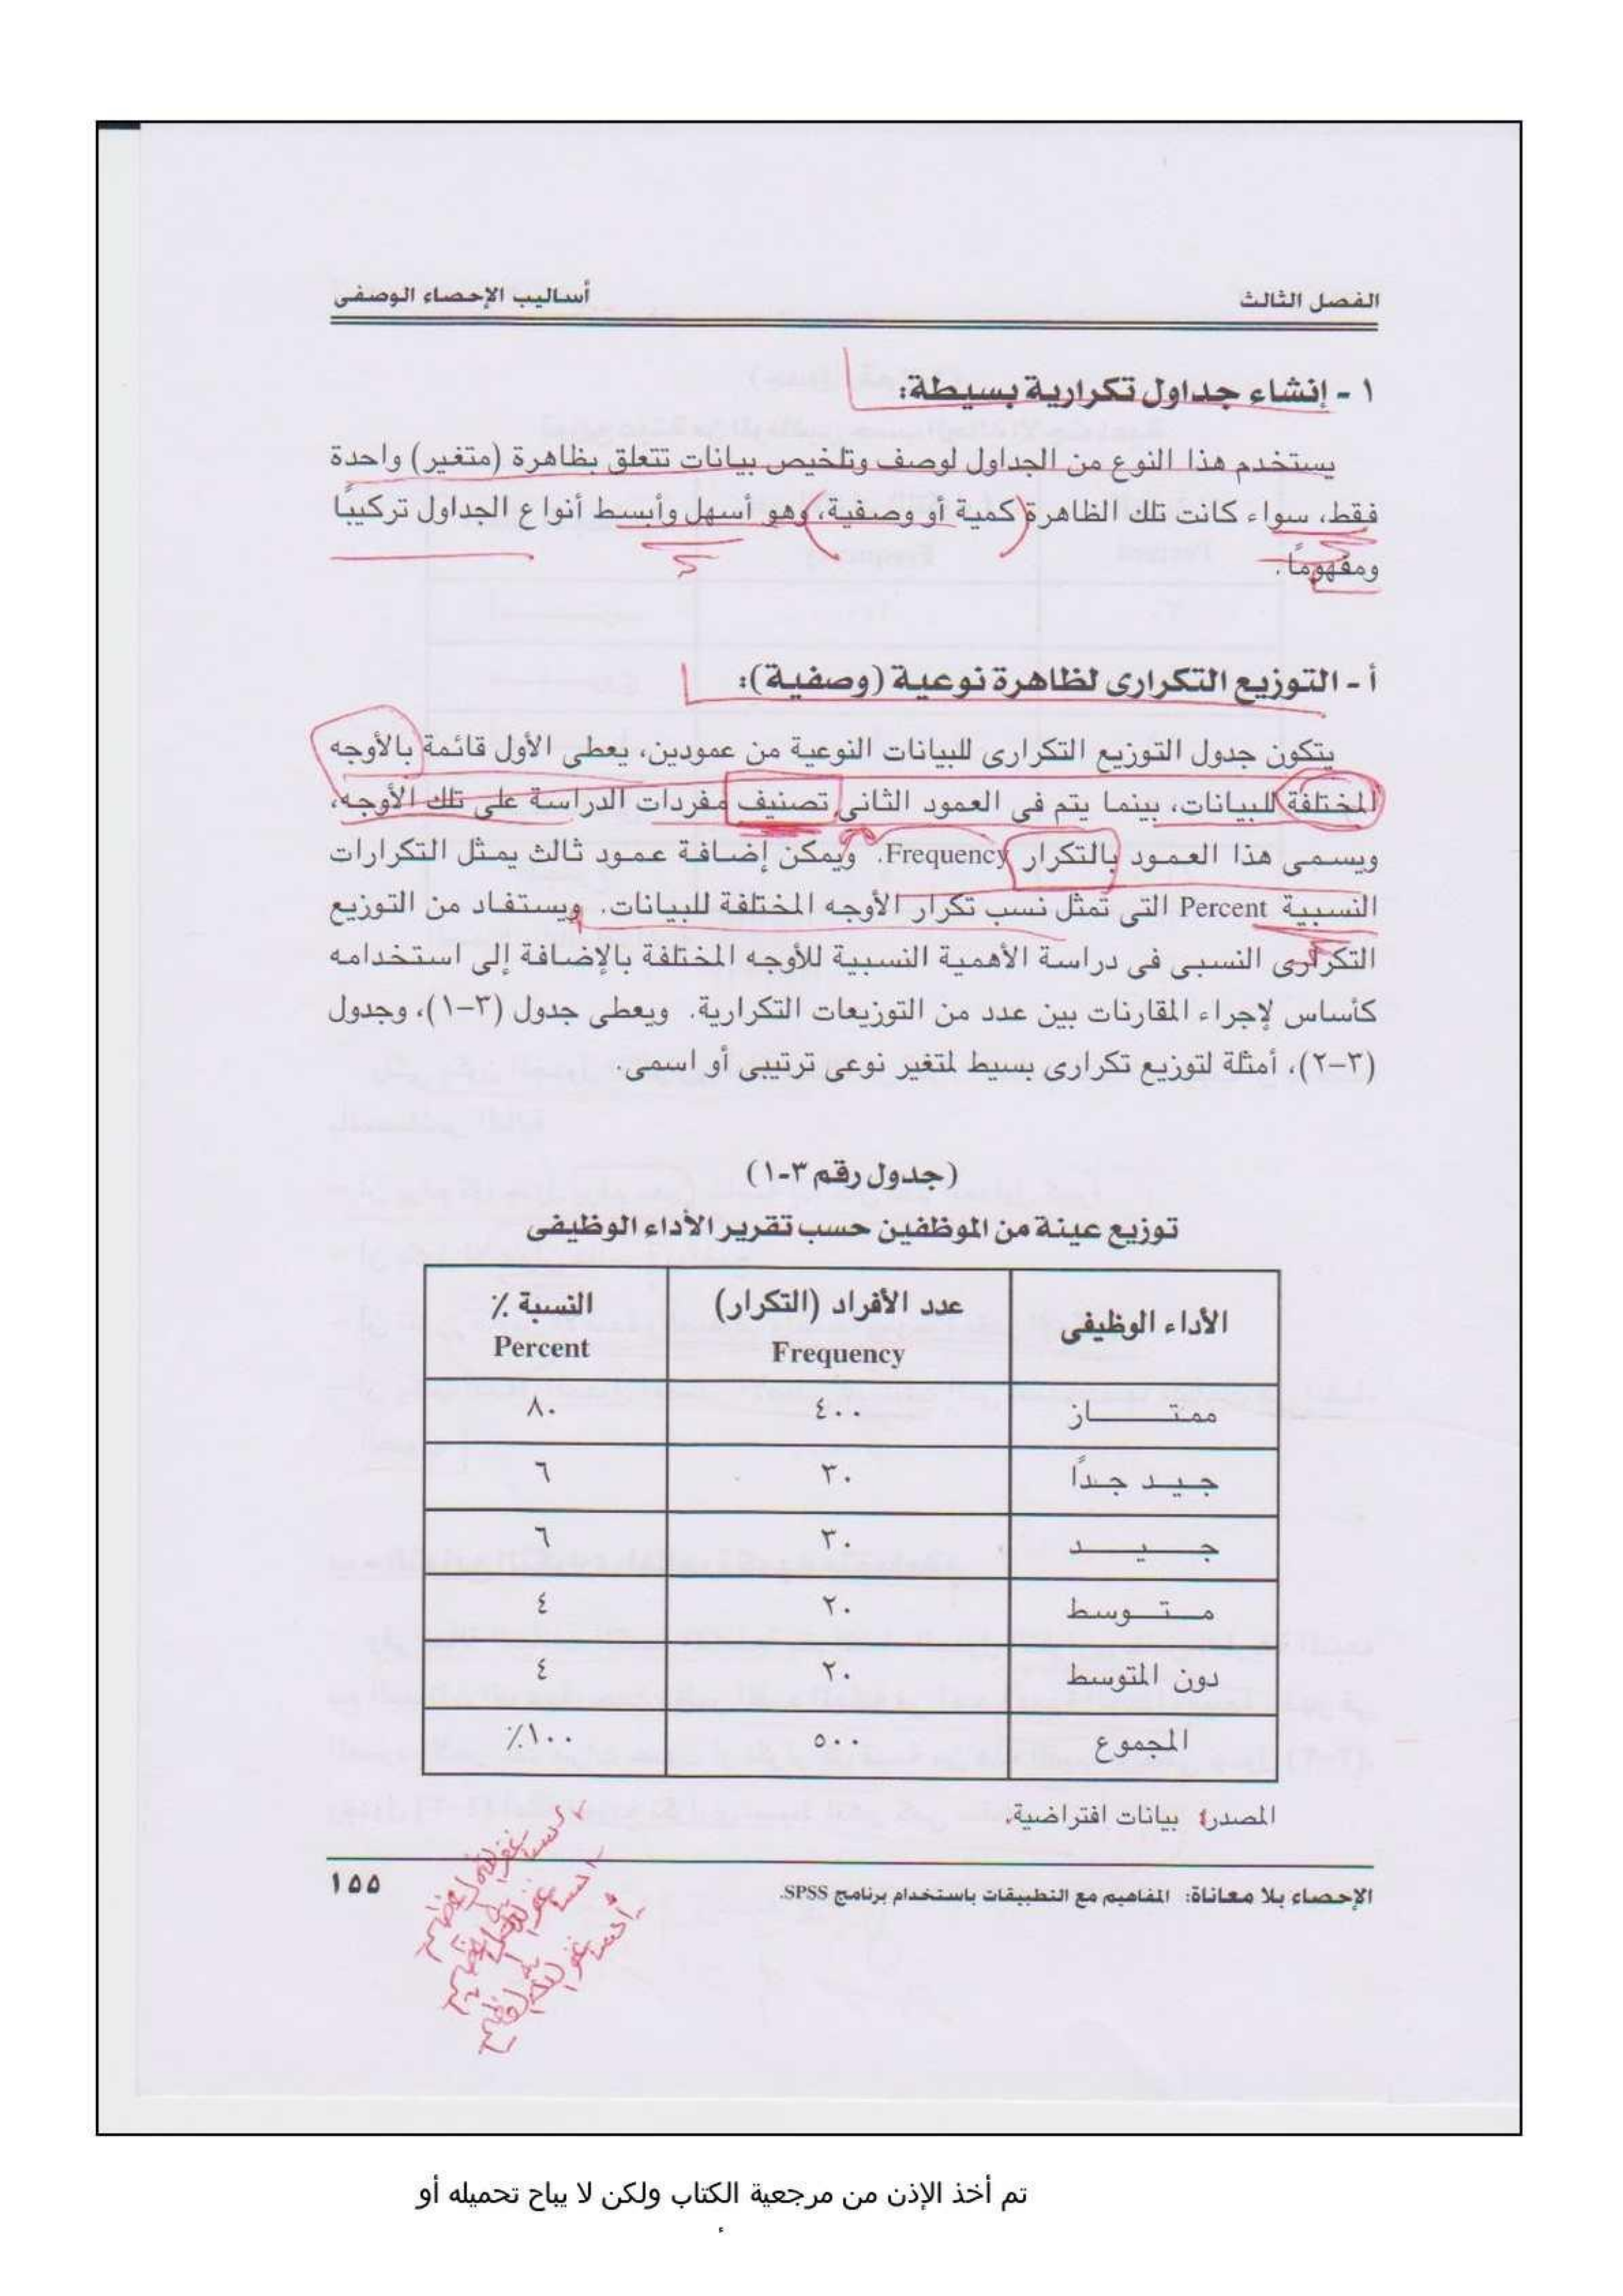 الفصل الثالث
أساليب الإحصاء الوصفى
١ - إنشاء جداول تكرارية بسيطة:
يستخدم هذا النوع من الجداول لوصف وتلخيص بيانات تتعلق بظاهرة (متغير) واحدة
فقط، سواء كانت تلك الظاهرة كمية أو وصفية، وهو أسهل وأبسط أنواع الجداول تركيبًا
ومفهومًا.
أ - التوزيع التكرارى لظاهرة نوعية (وصفية):
يتكون جدول التوزيع التكرارى للبيانات النوعية من عمودين، يعطى الأول قائمة بالأوجه
المختلفة للبيانات، بينما يتم فى العمود الثانى تصنيف مفردات الدراسة على تلك الأوجه،
ويسمى هذا العمود بالتكرار Frequency. ويمكن إضافة عمود ثالث يمثل التكرارات
النسبية Percent التى تمثل نسب تكرار الأوجه المختلفة للبيانات. ويستفاد من التوزيع
التكرارى النسبى فى دراسة الأهمية النسبية للأوجه المختلفة بالإضافة إلى استخدامه
كأساس لإجراء المقارنات بين عدد من التوزيعات التكرارية. ويعطى جدول (٣-١)، وجدول
(٣-٢)، أمثلة لتوزيع تكرارى بسيط لمتغير نوعى ترتيبى أو اسمى.
(جدول رقم ٣-١)
توزيع عينة من الموظفين حسب تقرير الأداء الوظيفى
الأداء الوظيفى عدد الأفراد (التكرار) Frequency النسبة ٪ Percent
ممتـــاز ٤٠٠ ٨٠
جـيـد جـدًا ٣٠ ٦
جـــيـــد ٣٠ ٦
مــتــوسط ٢٠ ٤
دون المتوسط ٢٠ ٤
المجموع ٥٠٠ ١٠٠٪
المصدر: بيانات افتراضية.
الإحصاء بلا معاناة: المفاهيم مع التطبيقات باستخدام برنامج SPSS.
١٥٥
استغفر الله العظيم
استغفر الله العظيم
استغفر الله العظيم
تم أخذ الإذن من مرجعية الكتاب ولكن لا يباح تحميله أو